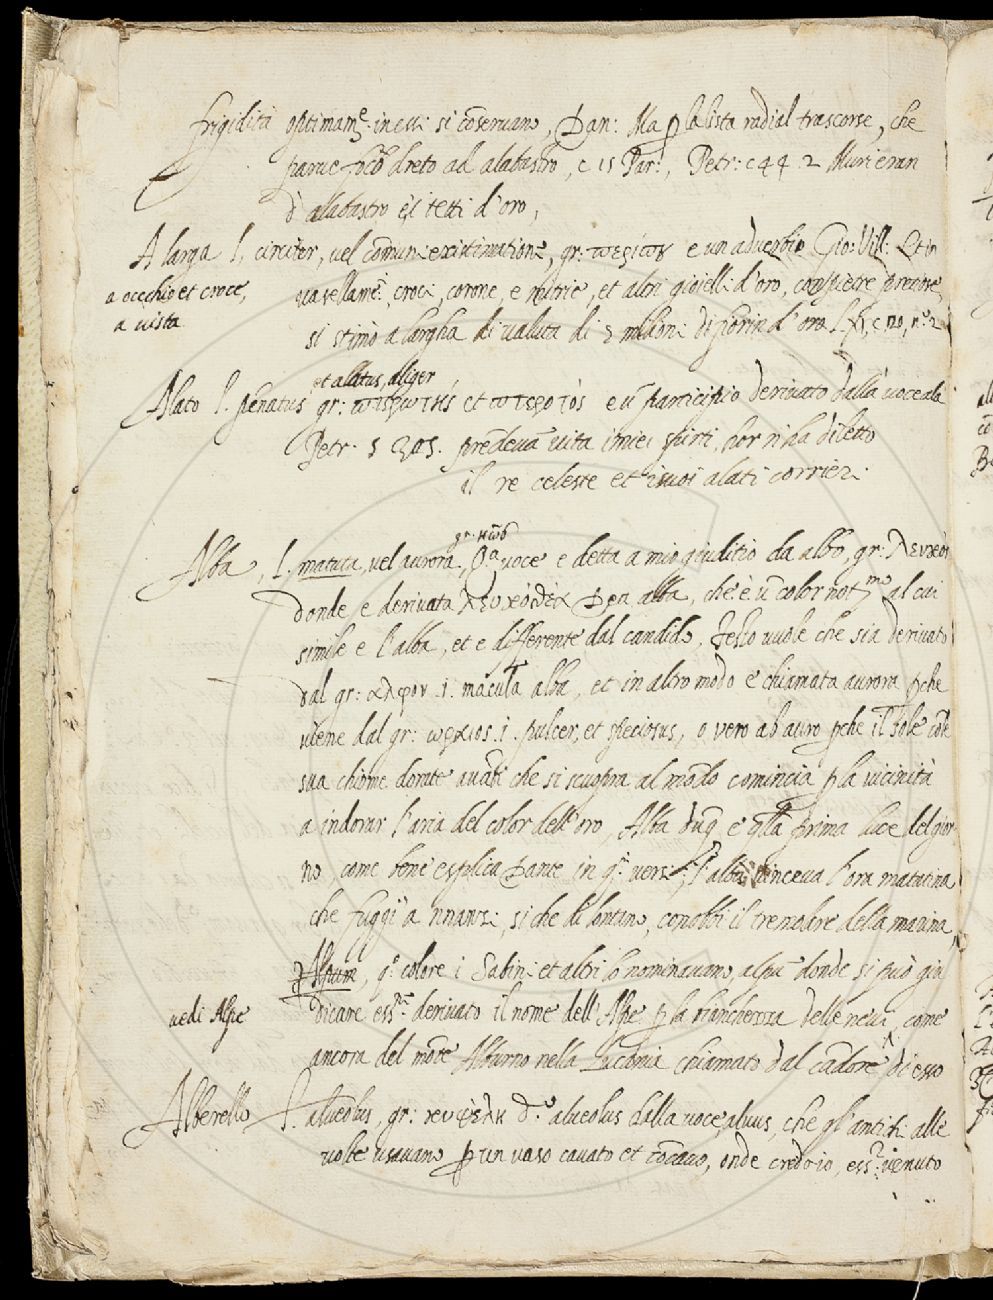 frigidità optimam.e in ess: si cõseruano, Dan: Ma p la lista radial trascorse, che
parue foco dreto ad alabastro, c 15 Par:, Petr: c 44. 2 Muri eran
d'alabastro è i tetti d'oro,
A larga l. circiter, vel comuni existimatione, gr: e un aduerbio Gio: Vill:
a occhio et croce,
vasellamẽ, croci, corone, e mitrie, et altri gioielli d'oro, con pietre pretiose
a uista
si stimò a largha di ualuta di 2 milion: di fiorin d'oro
et alatus, aliger,
Alato l. pẽnatus gr: et e ũ participio deriuato dalla uoce ala
Petr. s 305. prẽdeuã uita i miei spirti, hor n'ha diletto
il re celeste et i suoi alati corrieri
gr: ἠὼς
Alba, l. matuta, vel aurora, q.a uoce e detta a mio giuditio da albo, gr: λευκὸς
donde e deriuata Dea alba, che è ũ color not.mo al cui
simile e l'alba, et e differente dal candido, Festo uuole che sia deriuato
dal gr: αλφον .i. macula alba, et in altro modo e chiamata aurora pche
uiene dal gr: ωραιος .i. pulcer, et speciosus, o vero ab auro pche il sole cõle
sua chiome dorate auãti che si scuopra al mõdo comincia p la uicinità
a indorar l'aria del color dell'oro, Alba dũq e qlla prima luce del gior
no, come bene esplica Dante in q.i versi, l'alba uinceua l'ora matutina
che fuggi'a innanzi, si che di lontano, conobbi il tremolare della marina,
Alpum, q.o colore i Sabini et altri lo nominauano, alpũ donde si può giu
uedi Alpe
dicare ess.re deriuato il nome dell'Alpe p la bianchezza delle neui, come
ancora del mõte Alburno nella Lucania chiamato dal cãdore di esso
Alberello l. alueolus, gr: d.o alueolus dalla uoce, aluus, che gl'antichi alle
uolte usauano p un uaso cauato et cõcauo, onde cred'io, ess.r uenuto